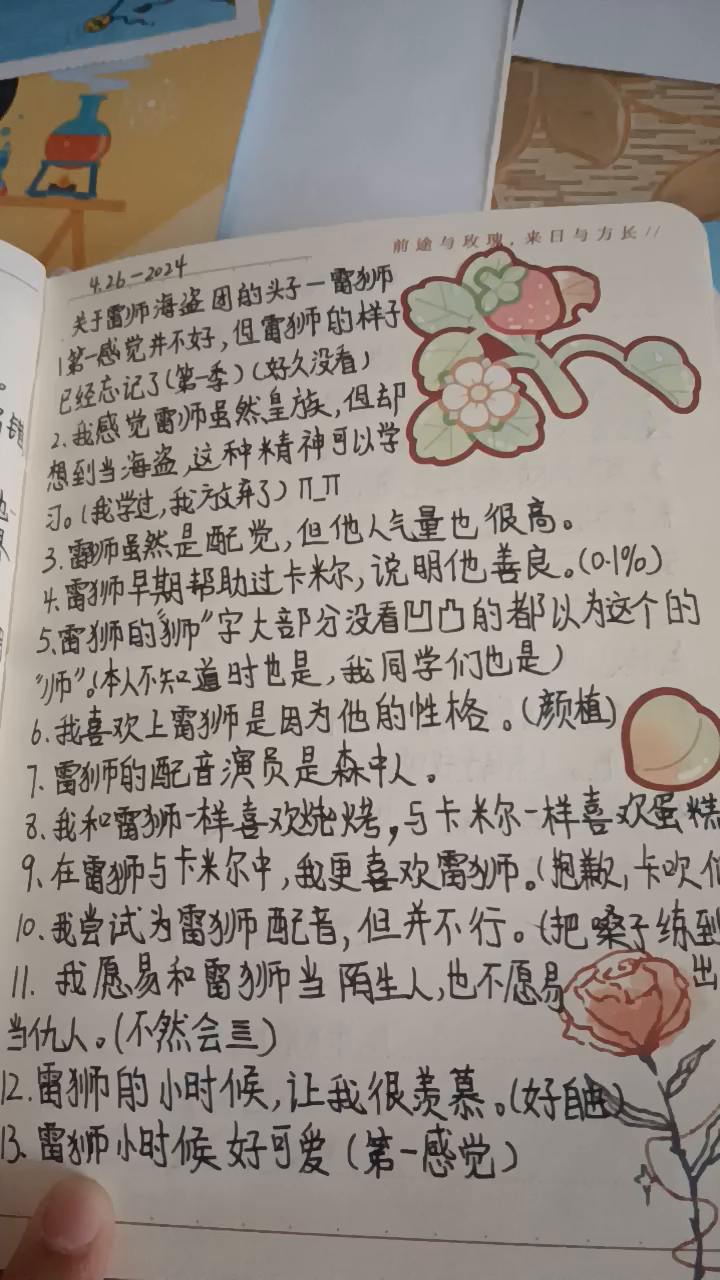 前途与玫瑰，来日与方长//
4.26-2024
关于雷师海盗团的头子一雷狮
1第一感觉并不好，但雷狮的样子
已经忘记了(第一季)(好久没看)
2.我感觉雷师虽然皇族，但却
想到当海盗，这种精神可以学
习。(我学过，我放弃了)Π_Π
3.雷狮虽然是配觉，但他人气量也很高。
4.雷狮早期帮助过卡米尔，说明他善良。(0.1%)
5.雷狮的“狮”字大部分没看凹凸的都以为这个的
“师”。(本人不知道时也是，我同学们也是)
6.我喜欢上雷狮是因为他的性格。(颜植)
7.雷狮的配音演员是森中人。
8.我和雷狮一样喜欢烧烤，与卡米尔一样喜欢蛋糕
9、在雷狮与卡米尔中，我更喜欢雷狮。(抱歉，卡吹们
10.我尝试为雷狮配音，但并不行。(把嗓子练到
11.我愿易和雷狮当陌生人，也不愿易
出
当仇人。(不然会三)
12.雷狮的小时候，让我很羡慕。(好自由)
13.雷狮小时候好可爱(第一感觉)